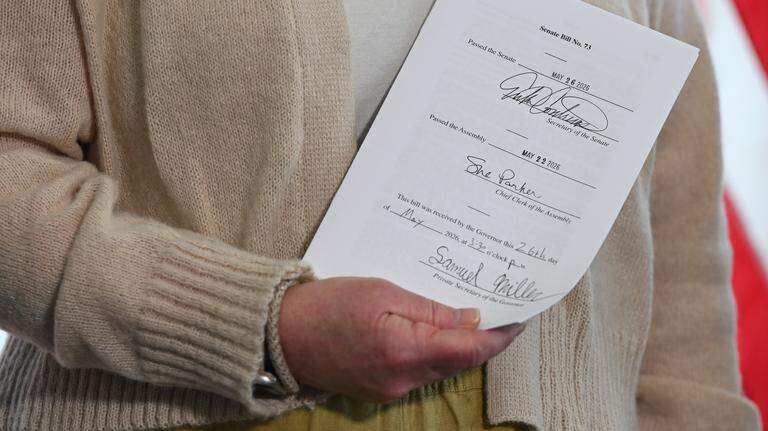 Senate Bill No. 73
Passed the Senate MAY 26 2026
Secretary of the Senate
Passed the Assembly MAY 22 2026
Sue Parker
Chief Clerk of the Assembly
This bill was received by the Governor this 26th day
of May 2026, at 3:30 o'clock p
Samuel Miller
Private Secretary of the Governor